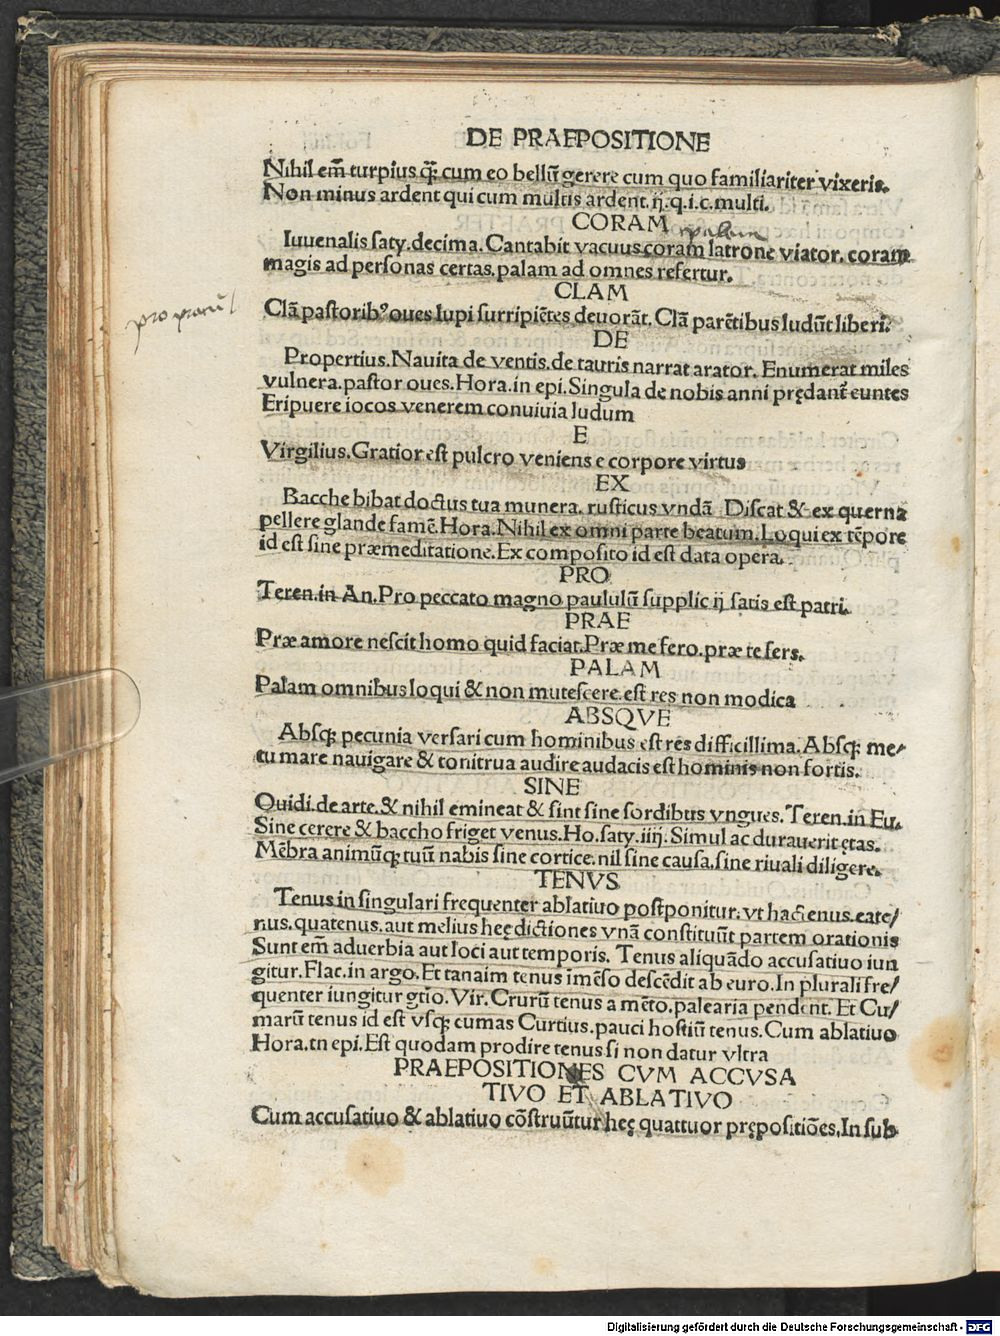 DE PRAEPOSITIONE
Nihil em̃ turpius q̃ȝ cum eo bellũ gerere cum quo familiariter vixeris.
Non minus ardent qui cum multis ardent.ij.q.i.c.multi.
CORAM
Iuuenalis saty.decima.Cantabit vacuus coram latrone viator.coram
magis ad personas certas.palam ad omnes refertur.
CLAM
pro procul
Clã pastoribꝰ oues lupi surripiẽtes deuorãt.Clã parẽtibus ludũt liberi.
DE
Propertius.Nauita de ventis.de tauris narrat arator. Enumerat miles
vulnera.pastor oues.Hora.in epi.Singula de nobis anni prędant̃ euntes
Eripuere iocos venerem conuiuia ludum
E
Virgilius.Gratior est pulcro veniens e corpore virtus
EX
Bacche bibat doctus tua munera. rusticus vndã Discat & ex querna
pellere glande famẽ.Hora.Nihil ex omni parte beatum.Loqui ex tẽpore
id est sine præmeditatione.Ex composito id est data opera.
PRO
Teren.in An.Pro peccato magno paululũ supplicij satis est patri.
PRAE
Præ amore nescit homo quid faciat.Præ me fero.præ te fers.
PALAM
Palam omnibus loqui & non mutescere.est res non modica
ABSQVE
Absqȝ pecunia versari cum hominibus est res difficillima.Absqȝ me/
tu mare nauigare & tonitrua audire audacis est hominis non fortis.
SINE
Ouidi.de arte.& nihil emineat & sint sine sordibus vngues. Teren.in Eu.
Sine cerere & baccho friget venus.Ho.saty.iiij.Simul ac durauerit ętas.
Mẽbra animũqȝ tuũ nabis sine cortice.nil sine causa.sine riuali diligere.
TENVS
Tenus in singulari frequenter ablatiuo postponitur.vt hactenus.eate/
nus.quatenus.aut melius heę dictiones vnã constituũt partem orationis
Sunt em̃ aduerbia aut loci aut temporis. Tenus aliquãdo accusatiuo iun
gitur.Flac.in argo.Et tanaim tenus ĩmẽso descẽdit ab euro.In plurali fre/
quenter iungitur gt̃io.Vir.Crurũ tenus a mẽto.palearia pendent. Et Cu/
marũ tenus id est vsqȝ cumas Curtius.pauci hostiũ tenus.Cum ablatiuo
Hora.tn epi.Est quodam prodire tenus si non datur vltra
PRAEPOSITIONES CVM ACCVSA
TIVO ET ABLATIVO
Cum accusatiuo & ablatiuo cõstruũtur heę quattuor prępositiões.In sub
Digitalisierung gefördert durch die Deutsche Forschungsgemeinschaft - DFG